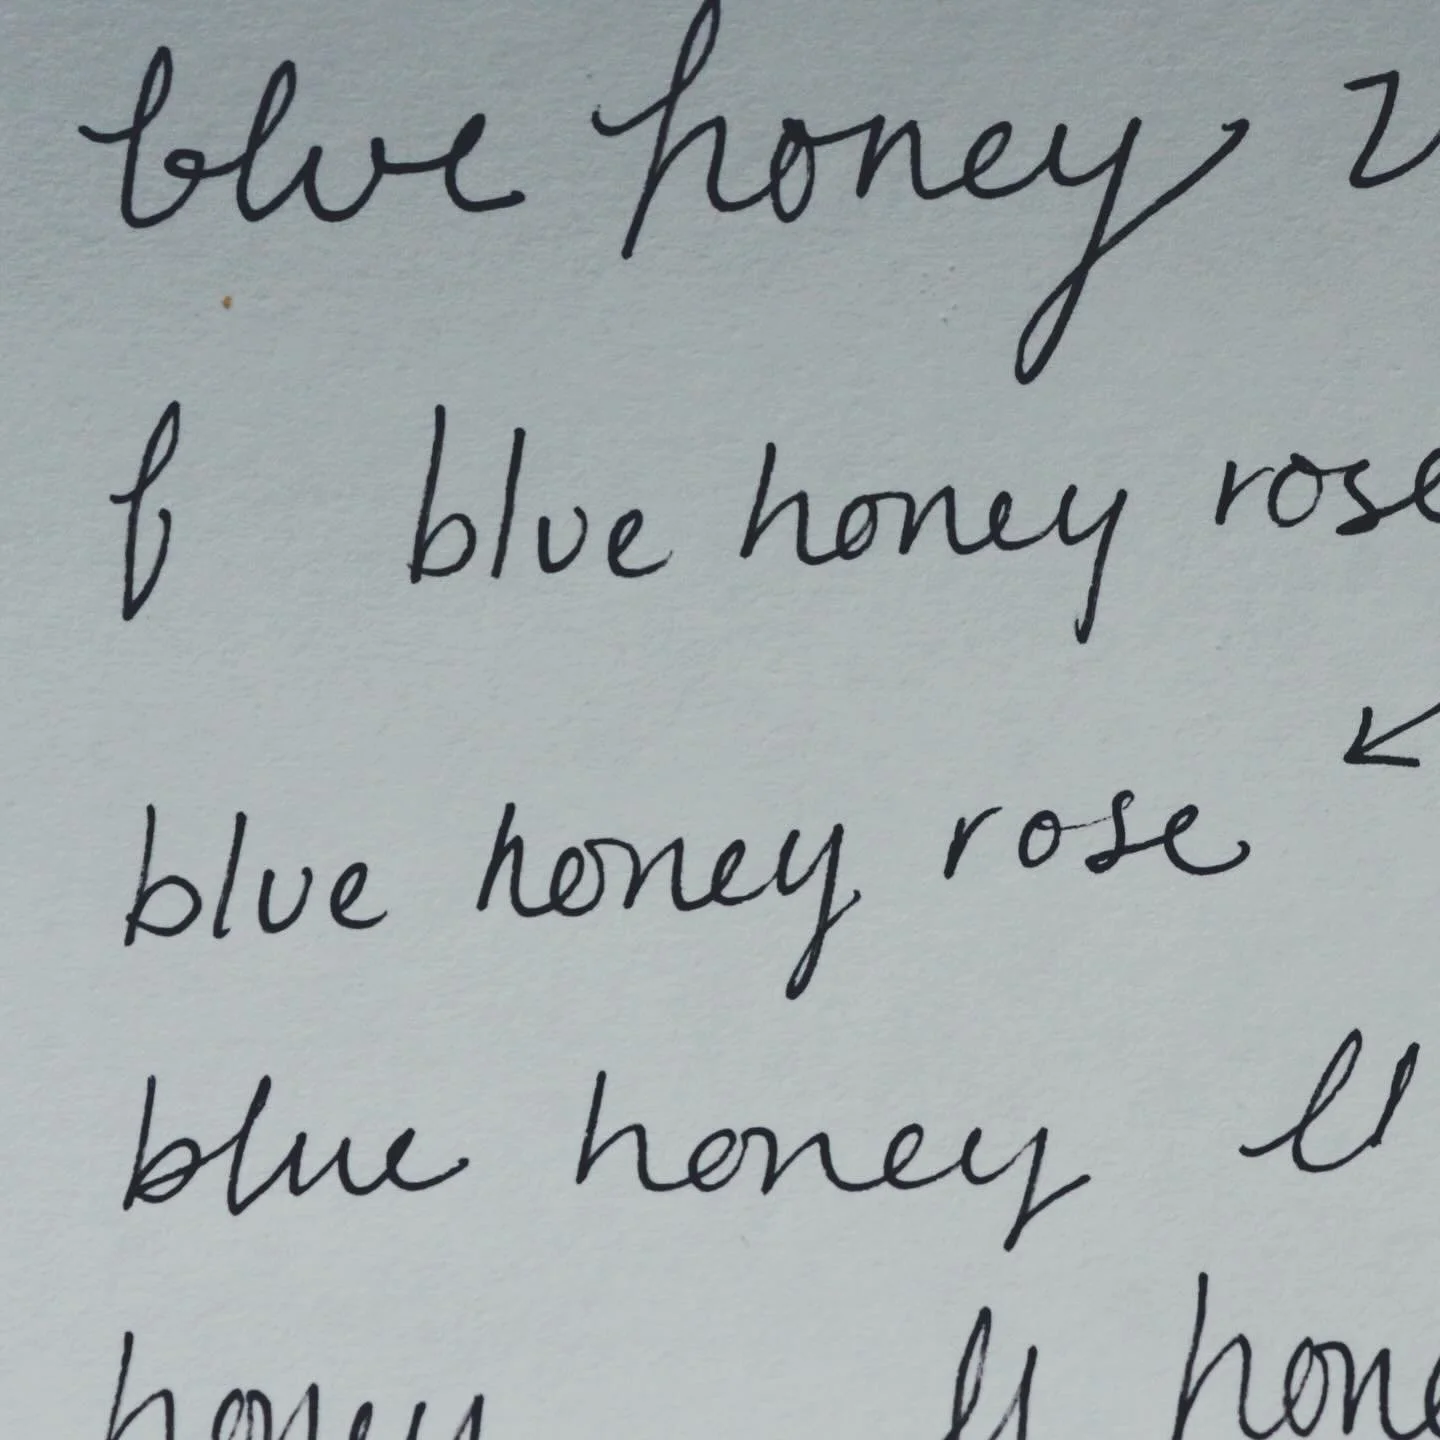 blue honey
blue honey rose
blue honey rose
blue honey
honey hone